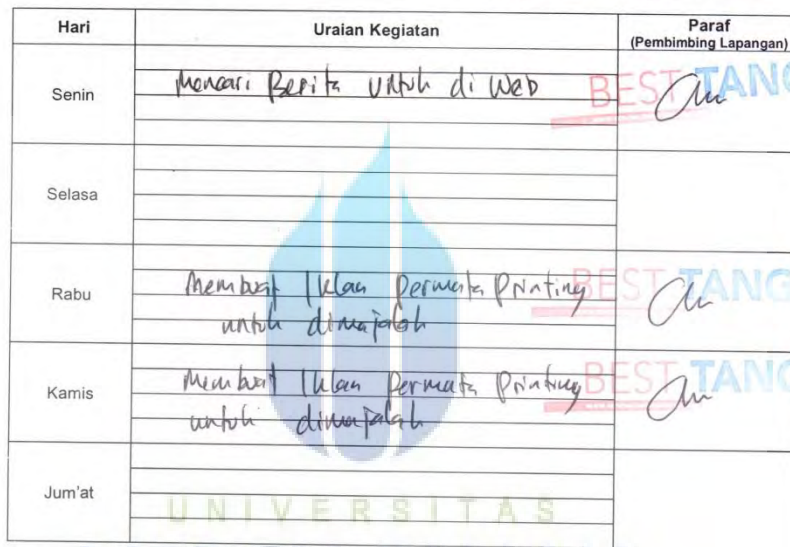 Hari Uraian Kegiatan Paraf
(Pembimbing Lapangan)
Senin Mencari Berita Untuk di Web BEST TANG
Selasa
Rabu Membuat Iklan Permata Printing BEST TANG
untuk dimajalah
Kamis Membuat Iklan Permata Printing BEST TANG
untuk dimajalah
Jum'at
UNIVERSITAS